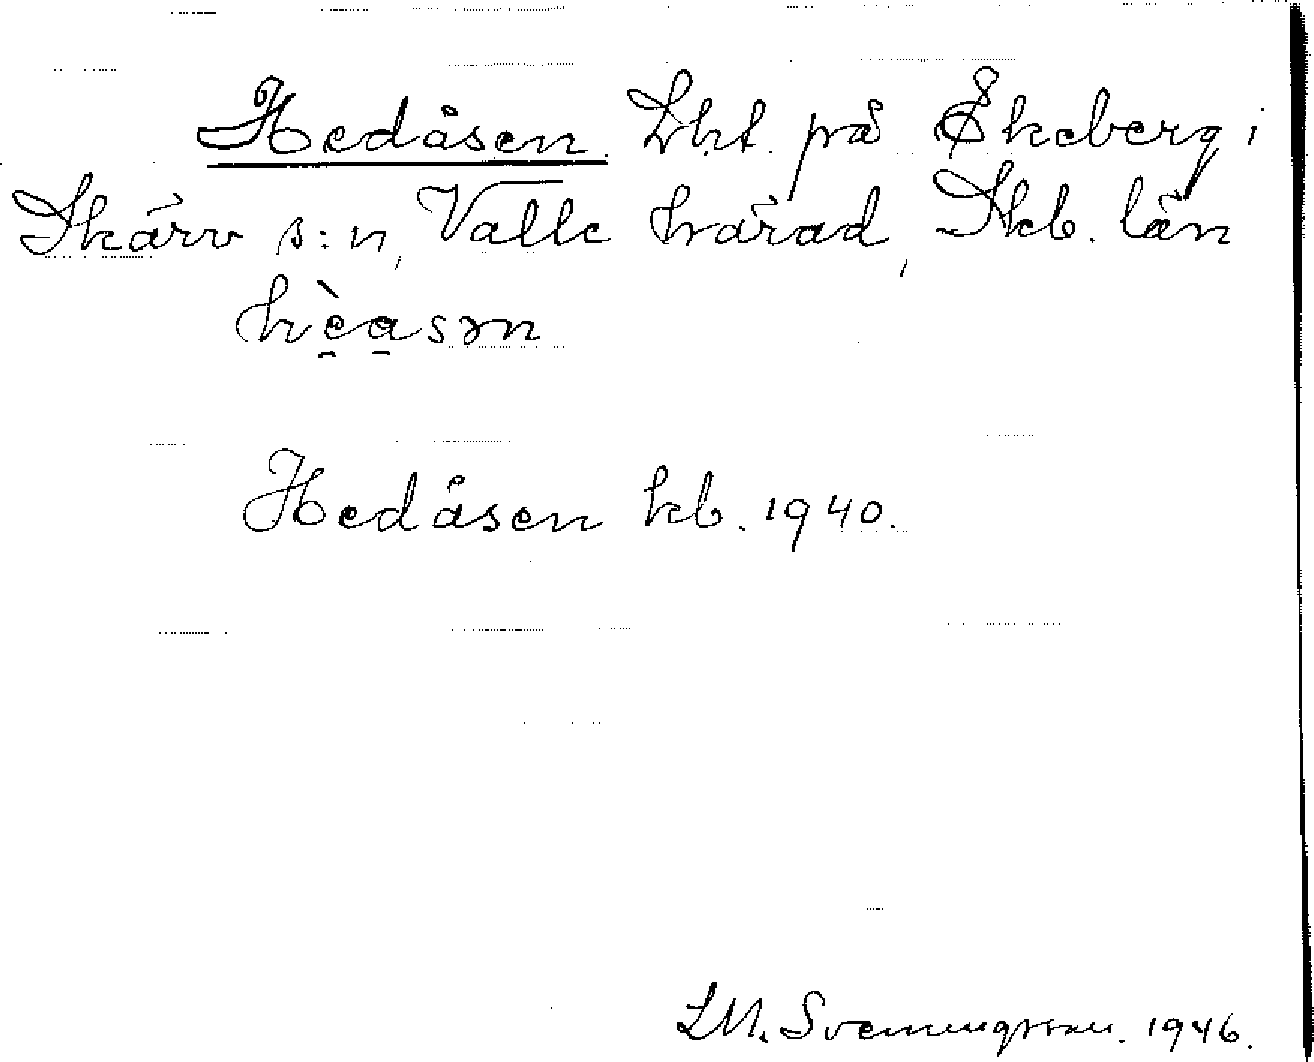 Hedåsen. Lht. på Ekeberg i
Skärv s:n, Valle härad, Skb. län
hè̠a̠sən
Hedåsen kb. 1940.
L.M. Svenungsson. 1946.